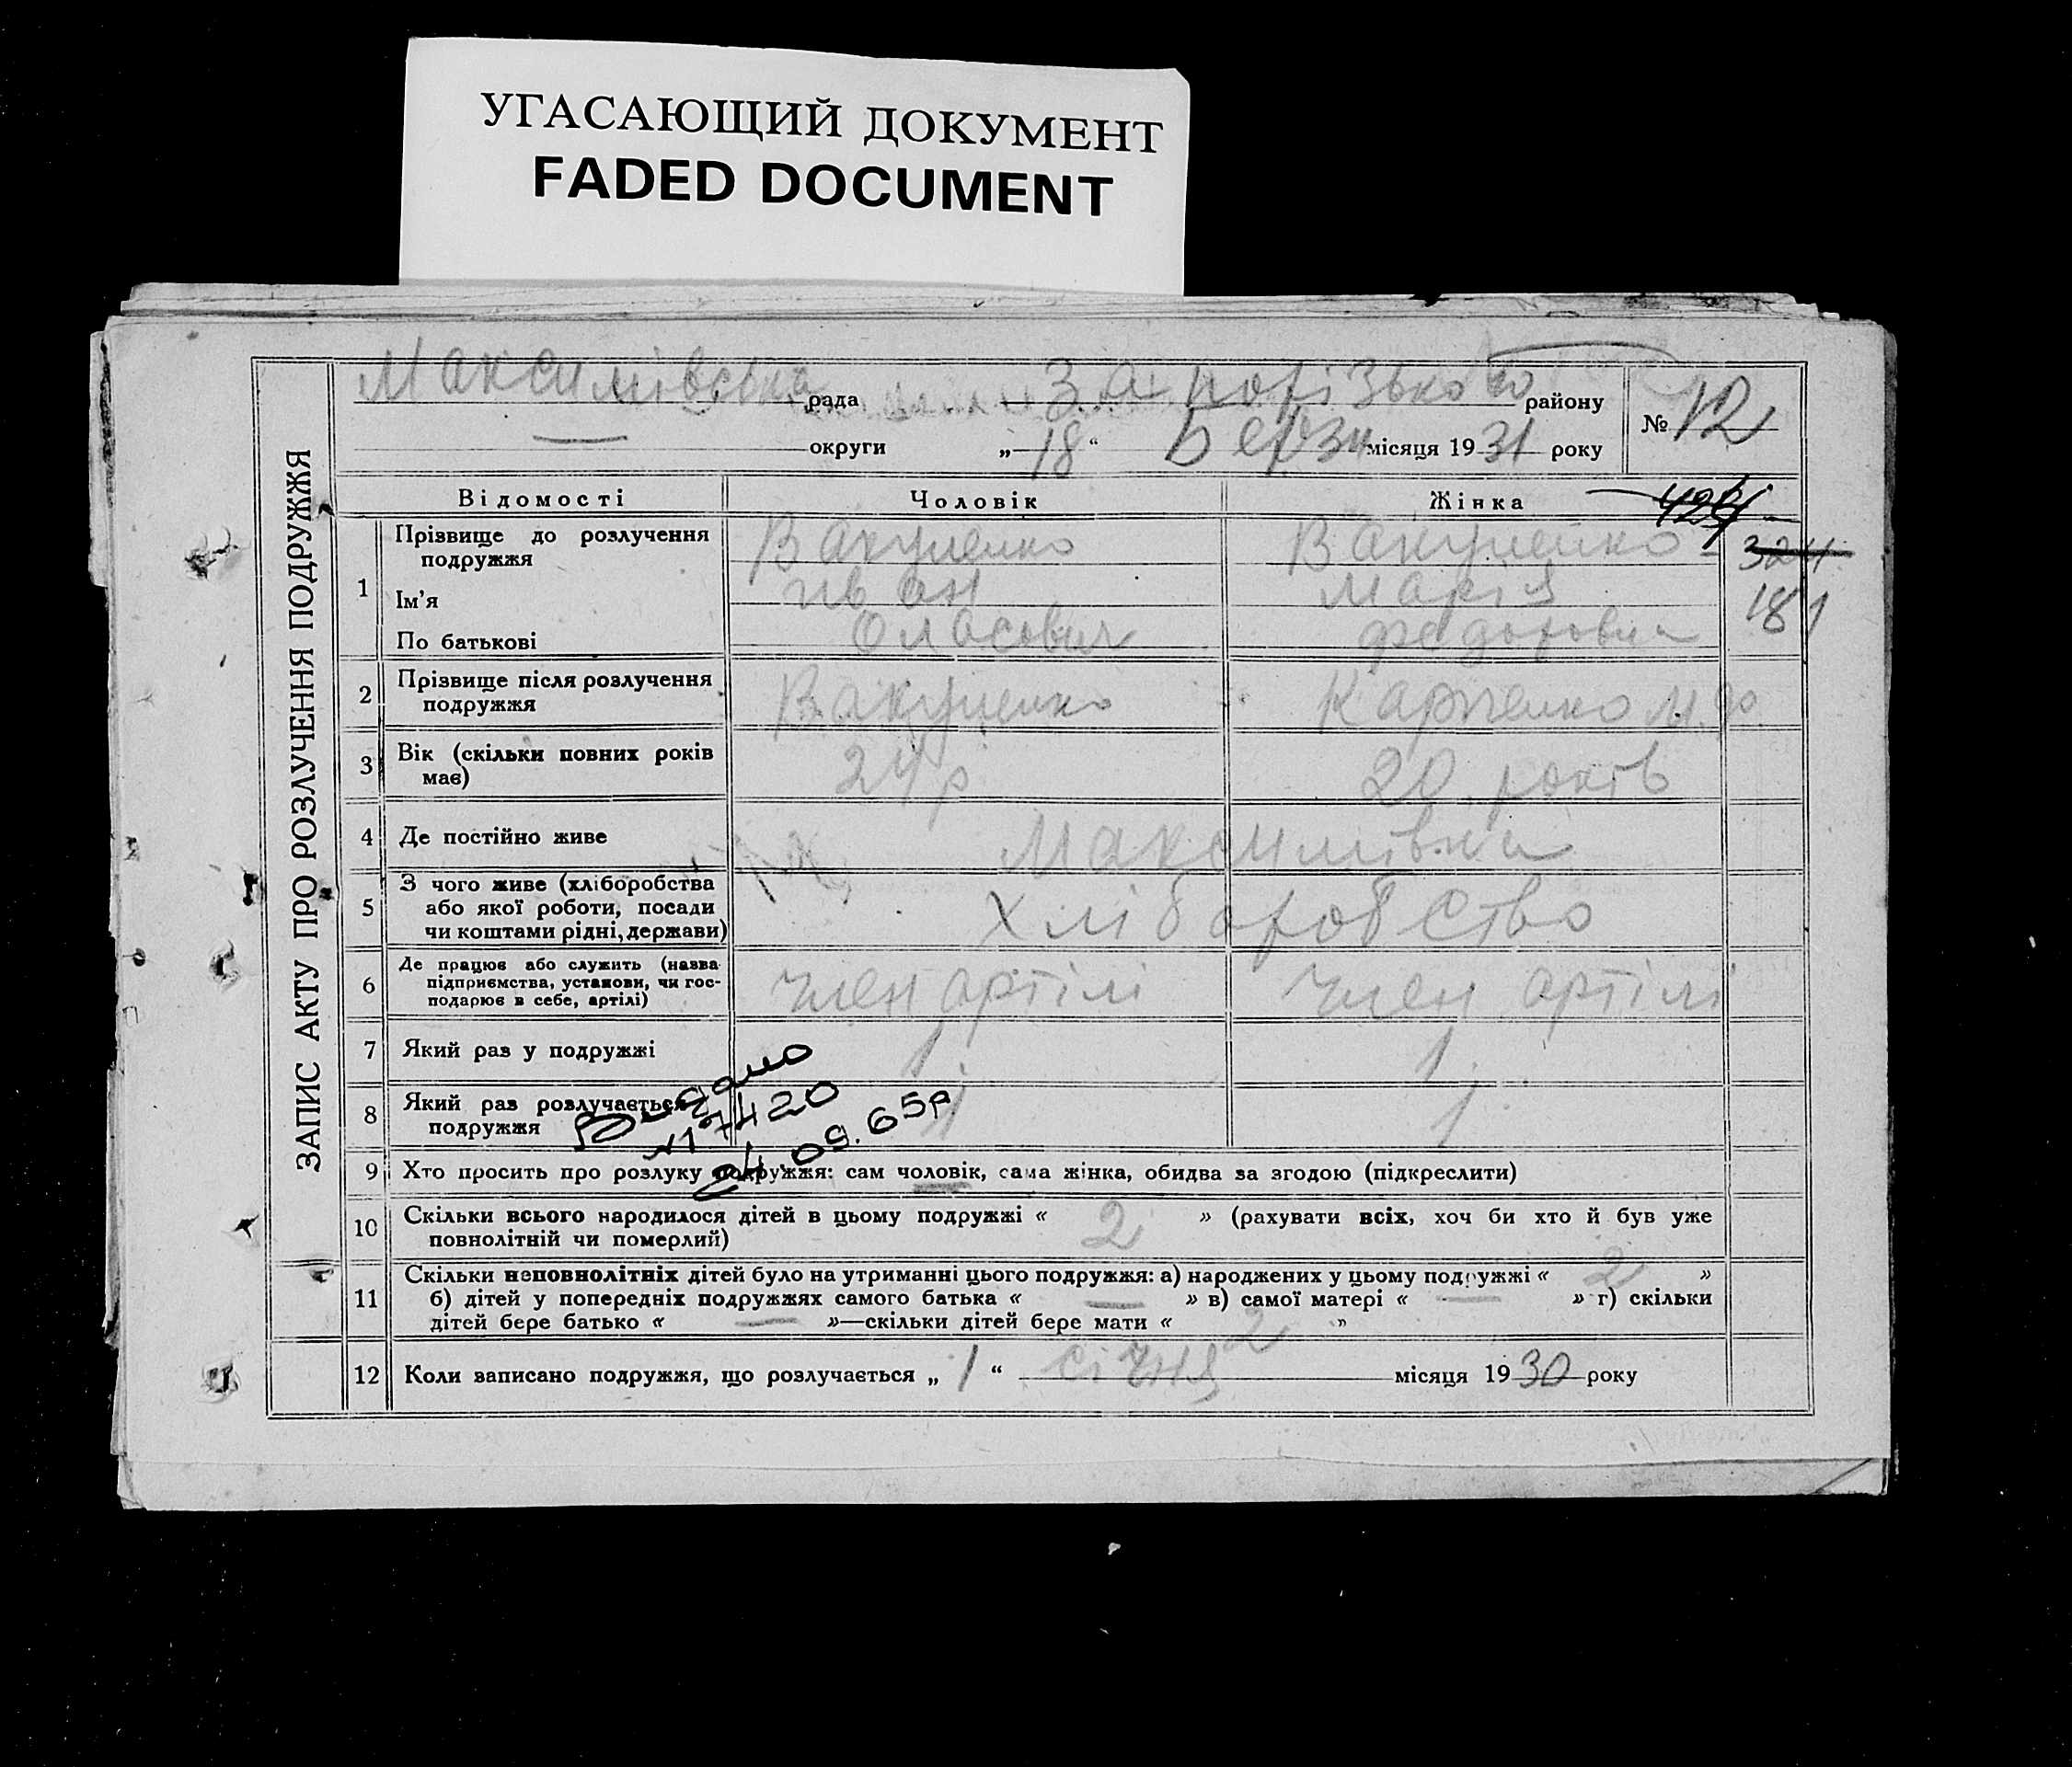 УГАСАЮЩИЙ ДОКУМЕНТ
FADED DOCUMENT
ЗАПИС АКТУ ПРО РОЗЛУЧЕННЯ ПОДРУЖЖЯ
Максимівська рада Запорізького району № 12
— округи „ 18 “ Березн місяця 19 31 року
Відомості Чоловік Жінка
1 Прізвище до розлучення Вакуленко Вакуленко 324
подружжя
Ім’я Иван Марія 181
По батькові Оласович Федоровна
2 Прізвище після розлучення Вакуленко Карпенко М. Ф.
подружжя
3 Вік (скільки повних років 24 р 20 років
має)
4 Де постійно живе Максимівка
5 З чого живе (хліборобства
або якої роботи, посади Хліборобство
чи коштами рідні, держави)
6 Де працює або служить (назва
підприємства, установи, чи гос- член артілі член артілі
подарює в себе, артілі)
7 Який раз у подружжі 1 1
8 Який раз розлучається 1 1
подружжя
Видано
17420
24.09.65р
9 Хто просить про розлуку подружжя: сам чоловік, сама жінка, обидва за згодою (підкреслити)
10 Скільки всього народилося дітей в цьому подружжі « 2 » (рахувати всіх, хоч би хто й був уже
повнолітній чи померлий)
11 Скільки неповнолітніх дітей було на утриманні цього подружжя: а) народжених у цьому подружжі « 2 »
б) дітей у попередніх подружжях самого батька « — » в) самої матері « — » г) скільки
дітей бере батько « — »—скільки дітей бере мати « 2 »
12 Коли записано подружжя, що розлучається „ 1 “ січня місяця 19 30 року